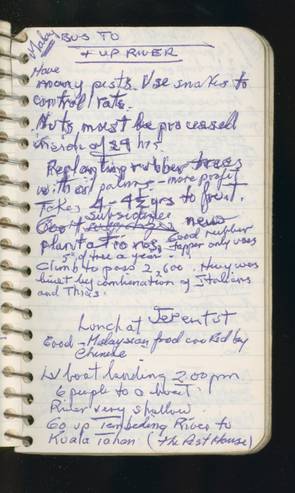 Malay
BUS TO
+ UP RIVER
Have
many pests. Use snakes to
control rats.
Nuts must be processed
inside of 24 hrs.
Replanting rubber trees
with oil palms - more profit
Takes 4-4½ yrs to fruit.
subsidizes
Gov't new
plantations. Good rubber
tapper only uses
5" of tree a year -
Climb to pass 2,600. Hwy was
built by combination of Italians
and Thais.
Lunch at Jerentut
Good - Malaysian food cooked by
Chinese -
Lv boat landing 2:00 pm
6 people to a boat.
River very shallow.
Go up Tembeling River to
Kuala Tahan (The Rest House)